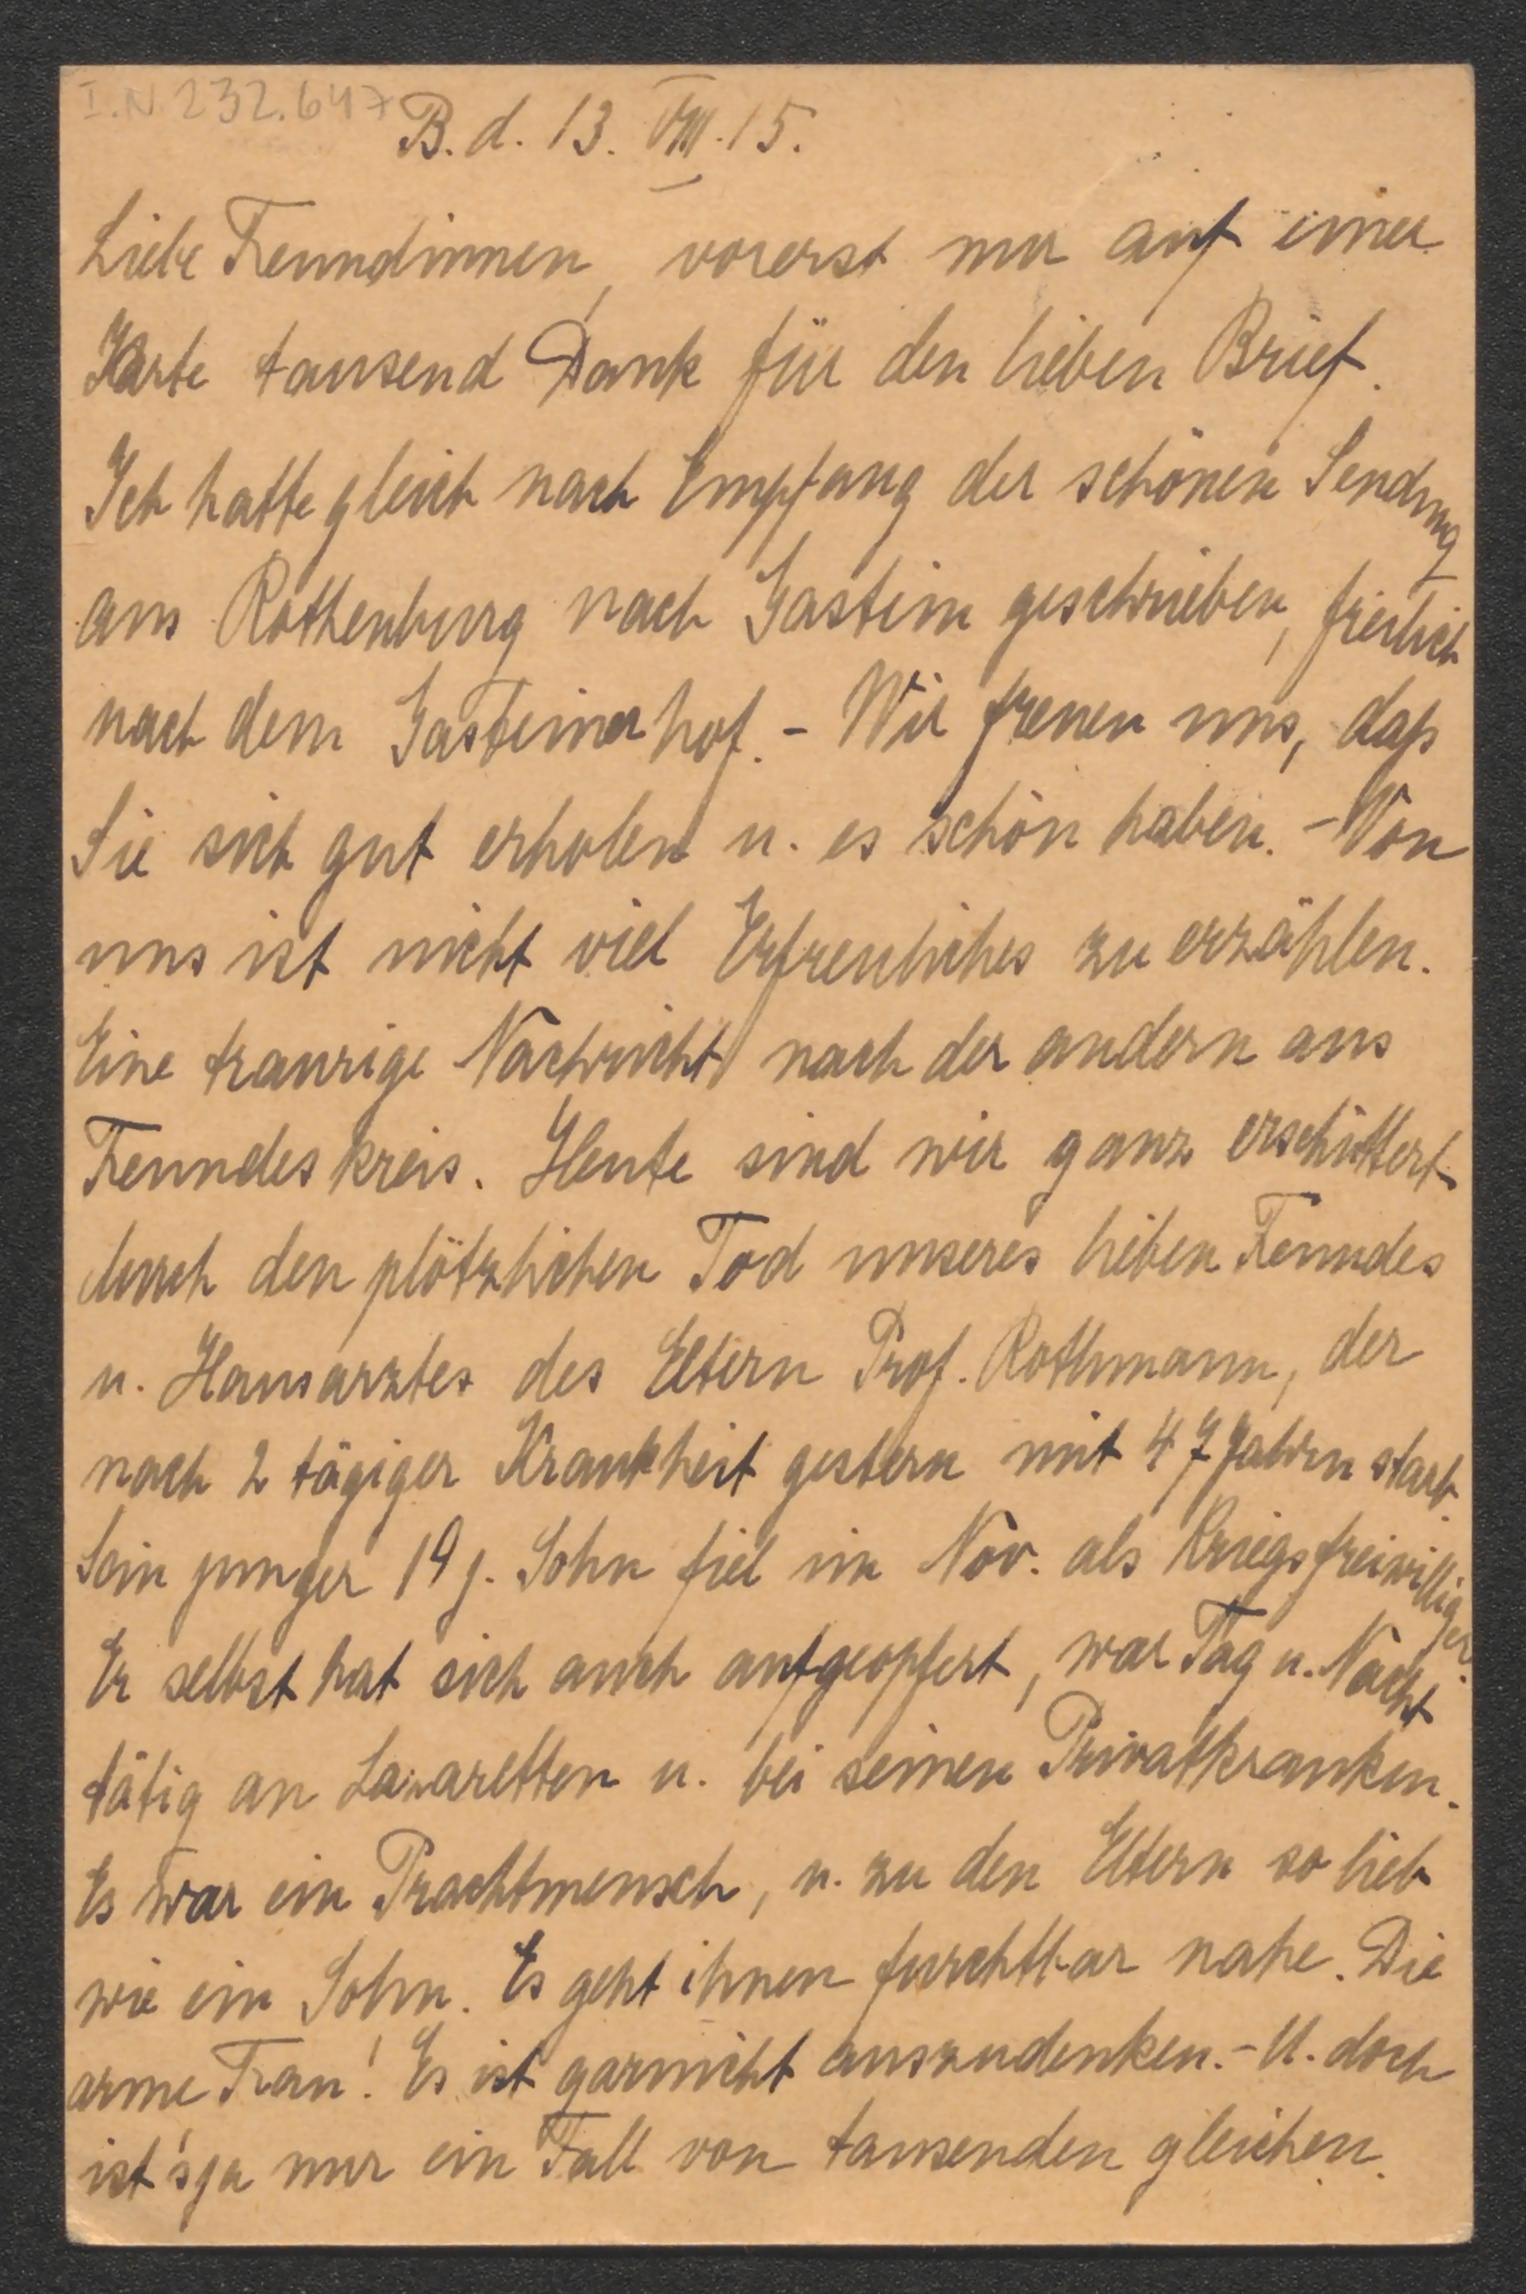 I.N. 232.647
B. d. 13. VIII. 15.
Liebe Freundinnen, vorerst nur auf einer
Karte tausend Dank für den lieben Brief.
Ich hatte gleich nach Empfang der schönen Sendung
aus Rothenburg nach Gastein geschrieben, freilich
nach dem Gasteinerhof. - Wir freuen uns, daß
Sie sich gut erholen u. es schön haben. - Von
uns ist nicht viel Erfreuliches zu erzählen.
Eine traurige Nachricht nach der andern aus
Freundeskreis. Heute sind wir ganz erschüttert
durch den plötzlichen Tod unseres lieben Freundes
u. Hausarztes des Eltern Prof. Rothmann, der
nach 2 tägiger Krankheit gestern mit 47 Jahren starb.
Sein junger 19 j. Sohn fiel im Nov. als Kriegsfreiwilliger.
Er selbst hat sich auch aufgeopfert, war Tag u. Nacht
tätig an Lazaretten u. bei seinen Privatkranken.
Es war ein Prachtmensch, u. zu den Eltern so lieb
wie ein Sohn. Es geht ihnen furchtbar nahe. Die
arme Frau! Es ist garnicht auszudenken. - U. doch
ist's ja nur ein Fall von tausenden gleichen.